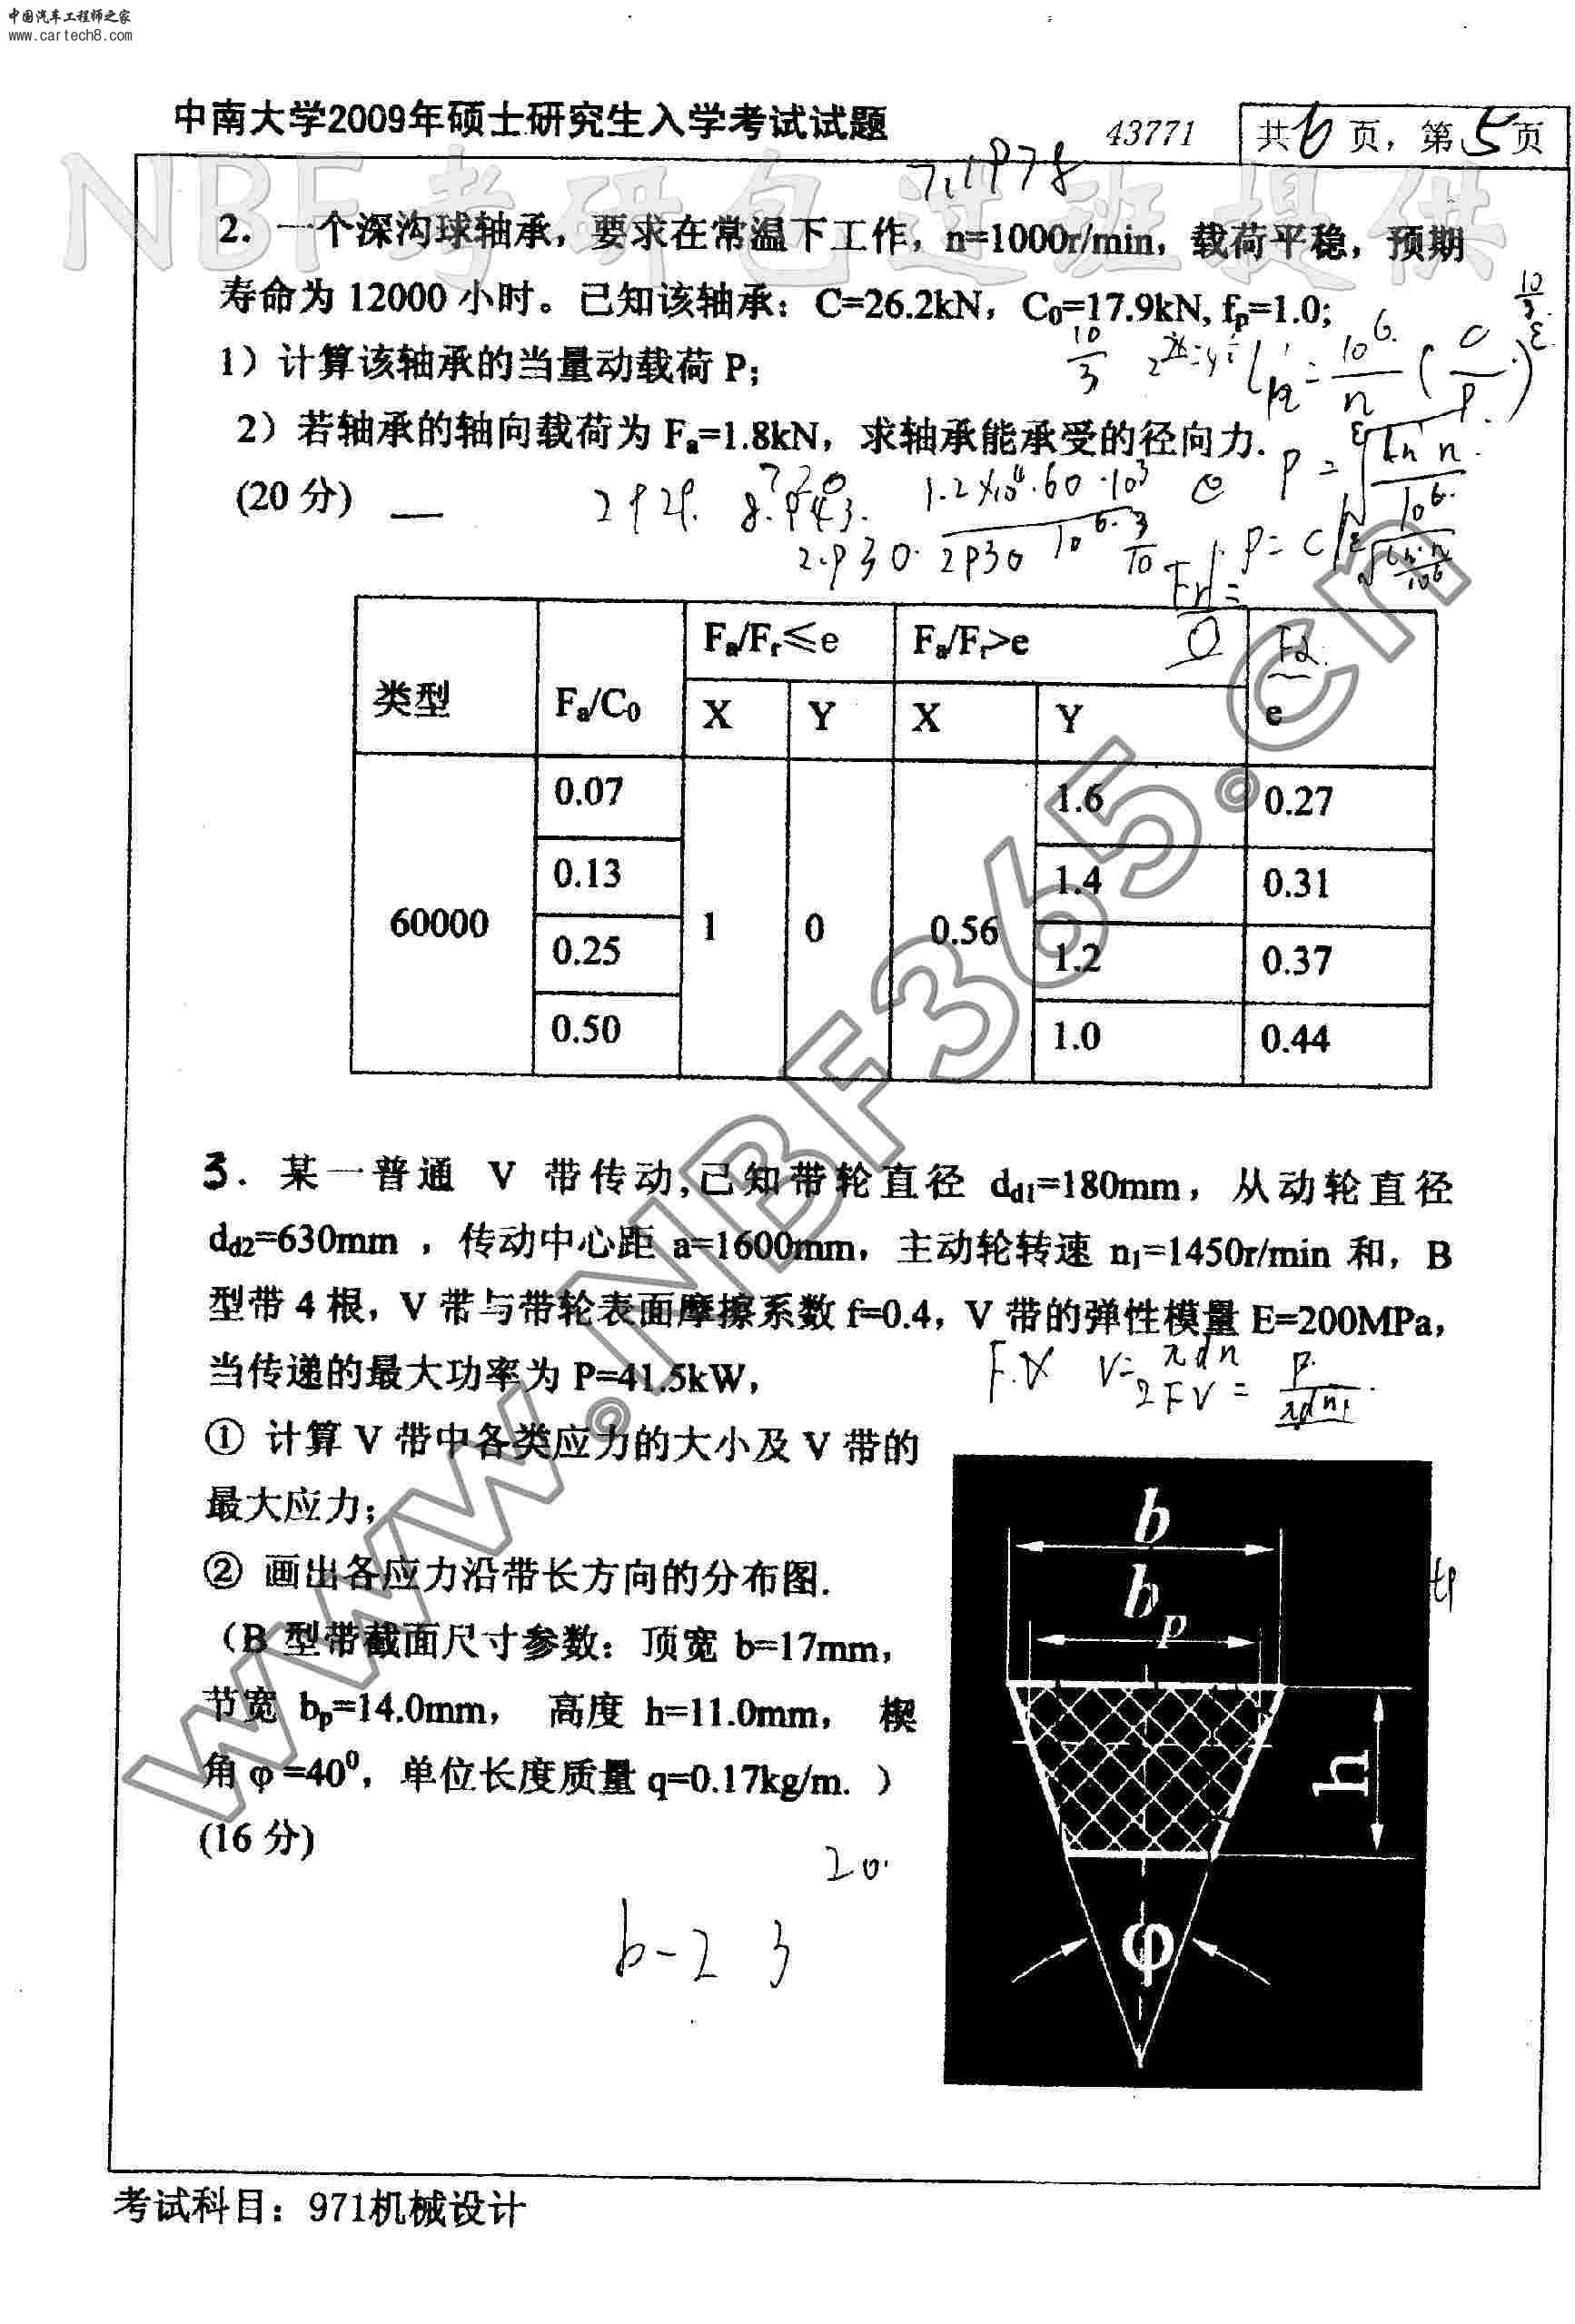 中国汽车工程师之家
www.cartech8.com
中南大学2009年硕士研究生入学考试试题
43771
共6页，第5页
NBF考研包过班提供
7.1978
2. 一个深沟球轴承，要求在常温下工作，n=1000r/min，载荷平稳，预期
寿命为 12000 小时。已知该轴承：C=26.2kN，C₀=17.9kN, fₚ=1.0;
1）计算该轴承的当量动载荷 P;
2）若轴承的轴向载荷为 Fₐ=1.8kN，求轴承能承受的径向力.
(20 分)
类型 Fₐ/C₀ Fₐ/Fᵣ≤e Fₐ/Fᵣ>e e
X Y X Y
60000 1 0 0.56
0.07 1.6 0.27
0.13 1.4 0.31
0.25 1.2 0.37
0.50 1.0 0.44
3. 某一普通 V 带传动,已知带轮直径 d_d1=180mm，从动轮直径
d_d2=630mm ，传动中心距 a=1600mm，主动轮转速 n₁=1450r/min 和，B
型带 4 根，V 带与带轮表面摩擦系数 f=0.4，V 带的弹性模量 E=200MPa，
当传递的最大功率为 P=41.5kW，
① 计算 V 带中各类应力的大小及 V 带的
最大应力；
② 画出各应力沿带长方向的分布图.
（B 型带截面尺寸参数：顶宽 b=17mm，
节宽 bₚ=14.0mm， 高度 h=11.0mm， 楔
角 φ =40⁰，单位长度质量 q=0.17kg/m. ）
(16 分)
b
bₚ
h
φ
20.
b-2 3
www.NBF365.cn
考试科目：971机械设计